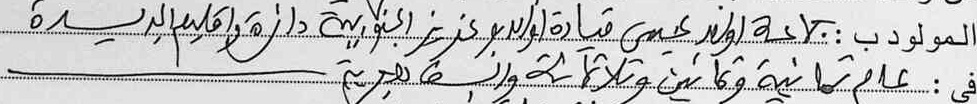 المولود ب: جماعة اولاد عيسى قيادة اولاد بوعزيز الجنوبية دائرة واقليم الجديدة
في: عام ثمانية وثمانين وثلاثمائة وألف هجرية